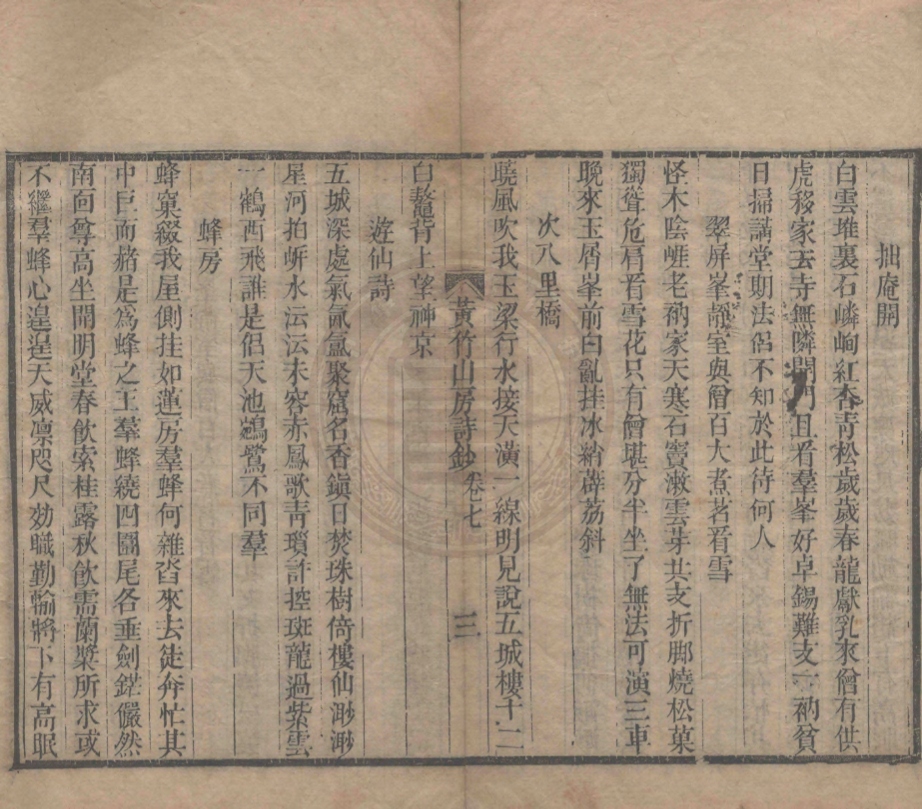 拙庵開
白雲堆裏石嶙峋紅杏青松歲歲春龍獻乳來僧有供
虎移家去寺無隣閉門且看羣峯好卓錫難支一衲貧
日掃講堂期法侶不知於此待何人
翠屏峯靜室與僧百大煮茗看雪
怪木陰嵼老衲家天寒石竇漱雲芽共支折脚燒松葉
獨聳危肩看雪花只有僧堪分半坐了無法可演三車
晚來玉屑峯前白亂挂冰綃薜荔斜
次八里橋
曉風吹我玉梁行水接天潢一線明見說五城樓十二
黃竹山房詩鈔 卷七 三
白鼇背上望神京
遊仙詩
五城深處氣氤氳聚窟名香鎭日焚珠樹倚樓仙渺渺
星河拍岍水沄沄未容赤鳳歌靑瑣許控斑龍過紫雲
一鶴西飛誰是侶天池鵷鷺不同羣
蜂房
蜂窠綴我屋側挂如蓮房羣蜂何雜沓來去徒奔忙其
中巨而赭是爲蜂之王羣蜂繞四圍尾各垂劍鋩儼然
南面尊高坐開明堂春飲索桂露秋飲需蘭漿所求或
不繼羣蜂心遑遑天威凛咫尺効職勤輸將下有高眠